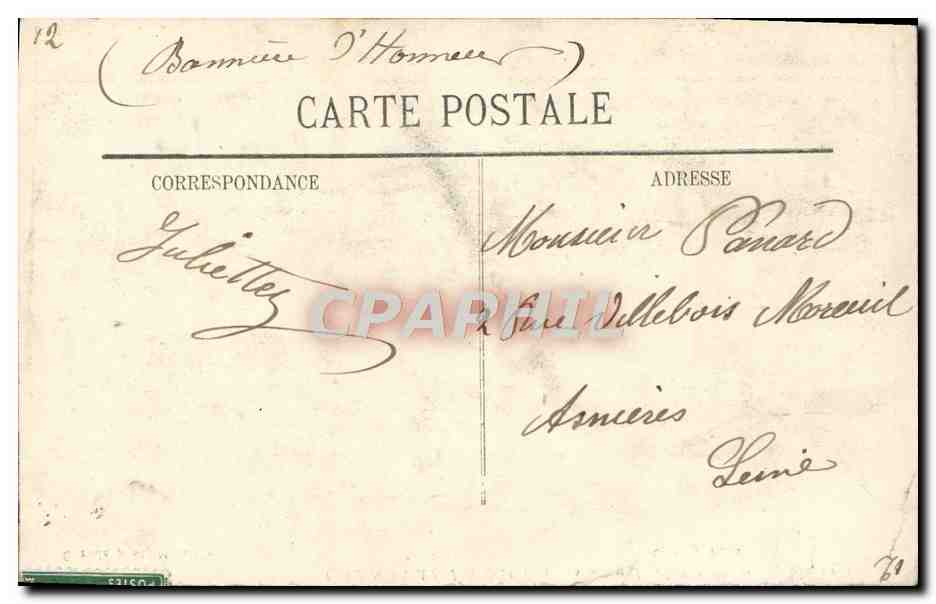 12
(Bannière d'Honneur)
CARTE POSTALE
CORRESPONDANCE
ADRESSE
Juliette
Monsieur Panard
2 Rue Villebois Mareuil
Asnières
Seine
CPAPHIL
POSTES